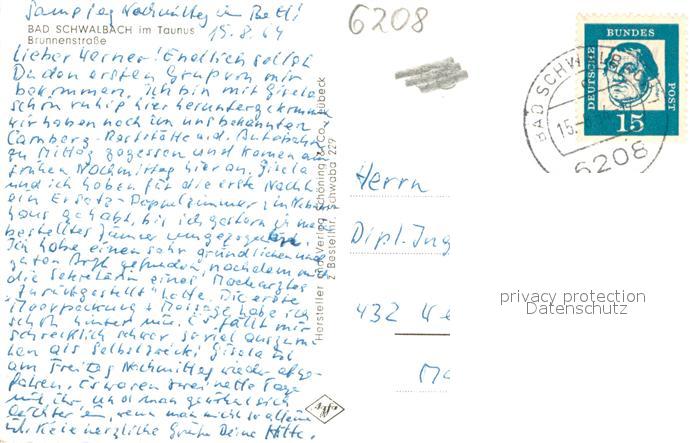 Samstag Nachmittag im Bett!
BAD SCHWALBACH im Taunus
Brunnenstraße
15.8.64
Lieber Werner! Endlich sollst
Du den ersten Gruß von mir
bekommen. Ich bin mit Gisela
schön ruhig hier heruntergekommen
wir haben noch im unbekannten
Camberg, Raststätte a.d. Autobahn
zu Mittag gegessen und kamen am
frühen Nachmittag hier an. Gisela
und ich haben für die erste Nacht
ein Ersatz-Doppelzimmer im Neben
haus gehabt, bis ich gestern in mein
bestelltes Zimmer umgezogen
Ich habe einen sehr gründlichen und
guten Arzt gefunden, nachdem mich
die Sekretärin eines Modearztes
"zurückgestellt" hatte. Die erste
Moorpackung + Massage habe ich
schon hinter mir. Es fällt mir
schrecklich schwer, so viel auszuru-
hen als Selbstzweck! Gisela ist
am Freitag Nachmittag wieder abge-
fahren. Es waren zwei nette Tage
mit ihr und man gewöhnt sich
leichter ein, wenn man nicht so alleine
ist. Viele herzliche Grüße Deine
Hersteller und Verlag Schöning & Co., Lübeck
Bestellnr. Schwaba 229
Agfa
6208
DEUTSCHE BUNDES POST
15
BAD SCHWALBACH
15.-8.
6208
Herrn
Dipl.-Ing
432
privacy protection
Datenschutz